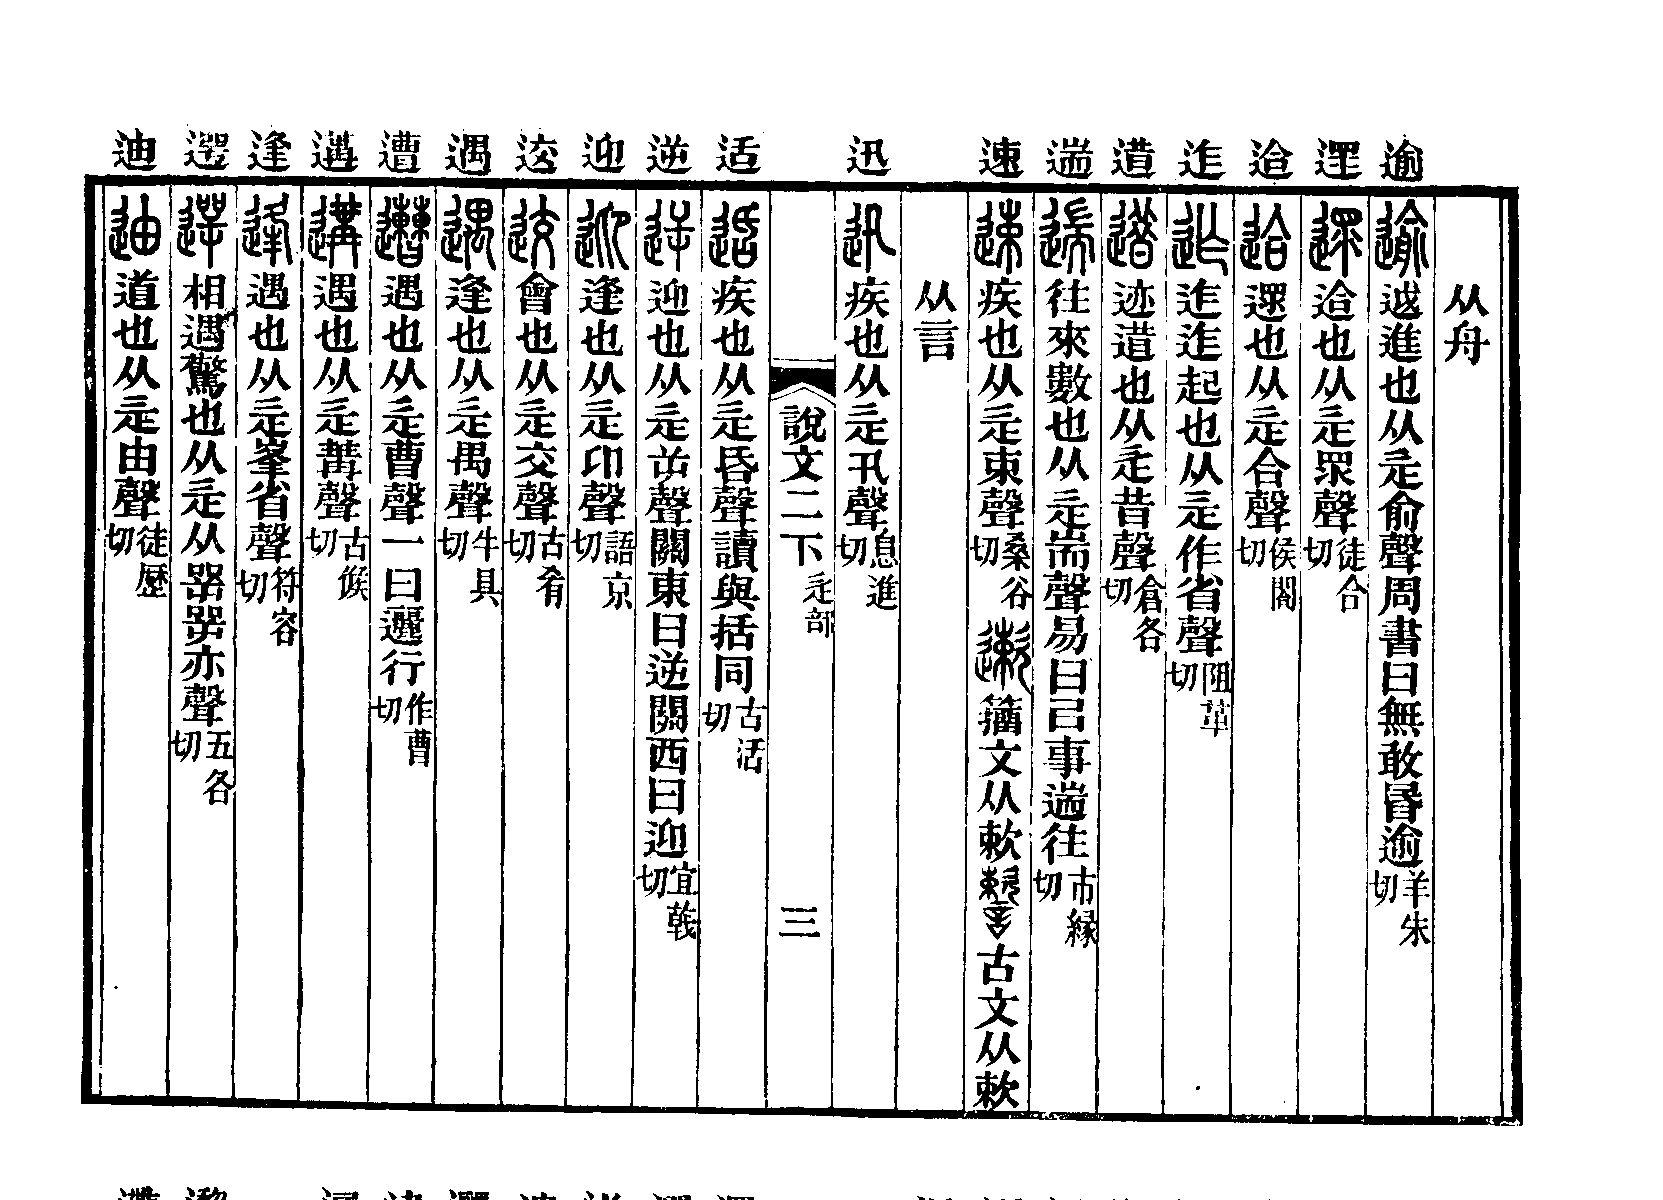 逾 遝 迨 迮 遣 遄 速 迅 适 逆 迎 䢒 遇 遭 遘 逢 遻 迪
从舟
逾 䢕進也从辵俞聲周書曰無敢昬逾羊朱切
遝 迨也从辵眔聲徒合切
迨 遝也从辵合聲侯閤切
迮 迮迮起也从辵作省聲阻革切
逪 迹逪也从辵昔聲倉各切
遄 往來數也从辵耑聲易曰㠯事遄往市緣切
速 疾也从辵束聲桑谷切 遬 籒文从欶 警 古文从欶
从言
迅 疾也从辵卂聲息進切
說文二下 辵部 三
适 疾也从辵昏聲讀與括同古活切
逆 迎也从辵屰聲關東曰逆關西曰迎宜戟切
迎 逢也从辵卬聲語京切
䢒 會也从辵交聲古肴切
遇 逢也从辵禺聲牛具切
遭 遇也从辵曹聲一曰邐行作曹切
遘 遇也从辵冓聲古候切
逢 遇也从辵峯省聲符容切
遻 相遇驚也从辵从㖾㖾亦聲五各切
迪 道也从辵由聲徒歷切